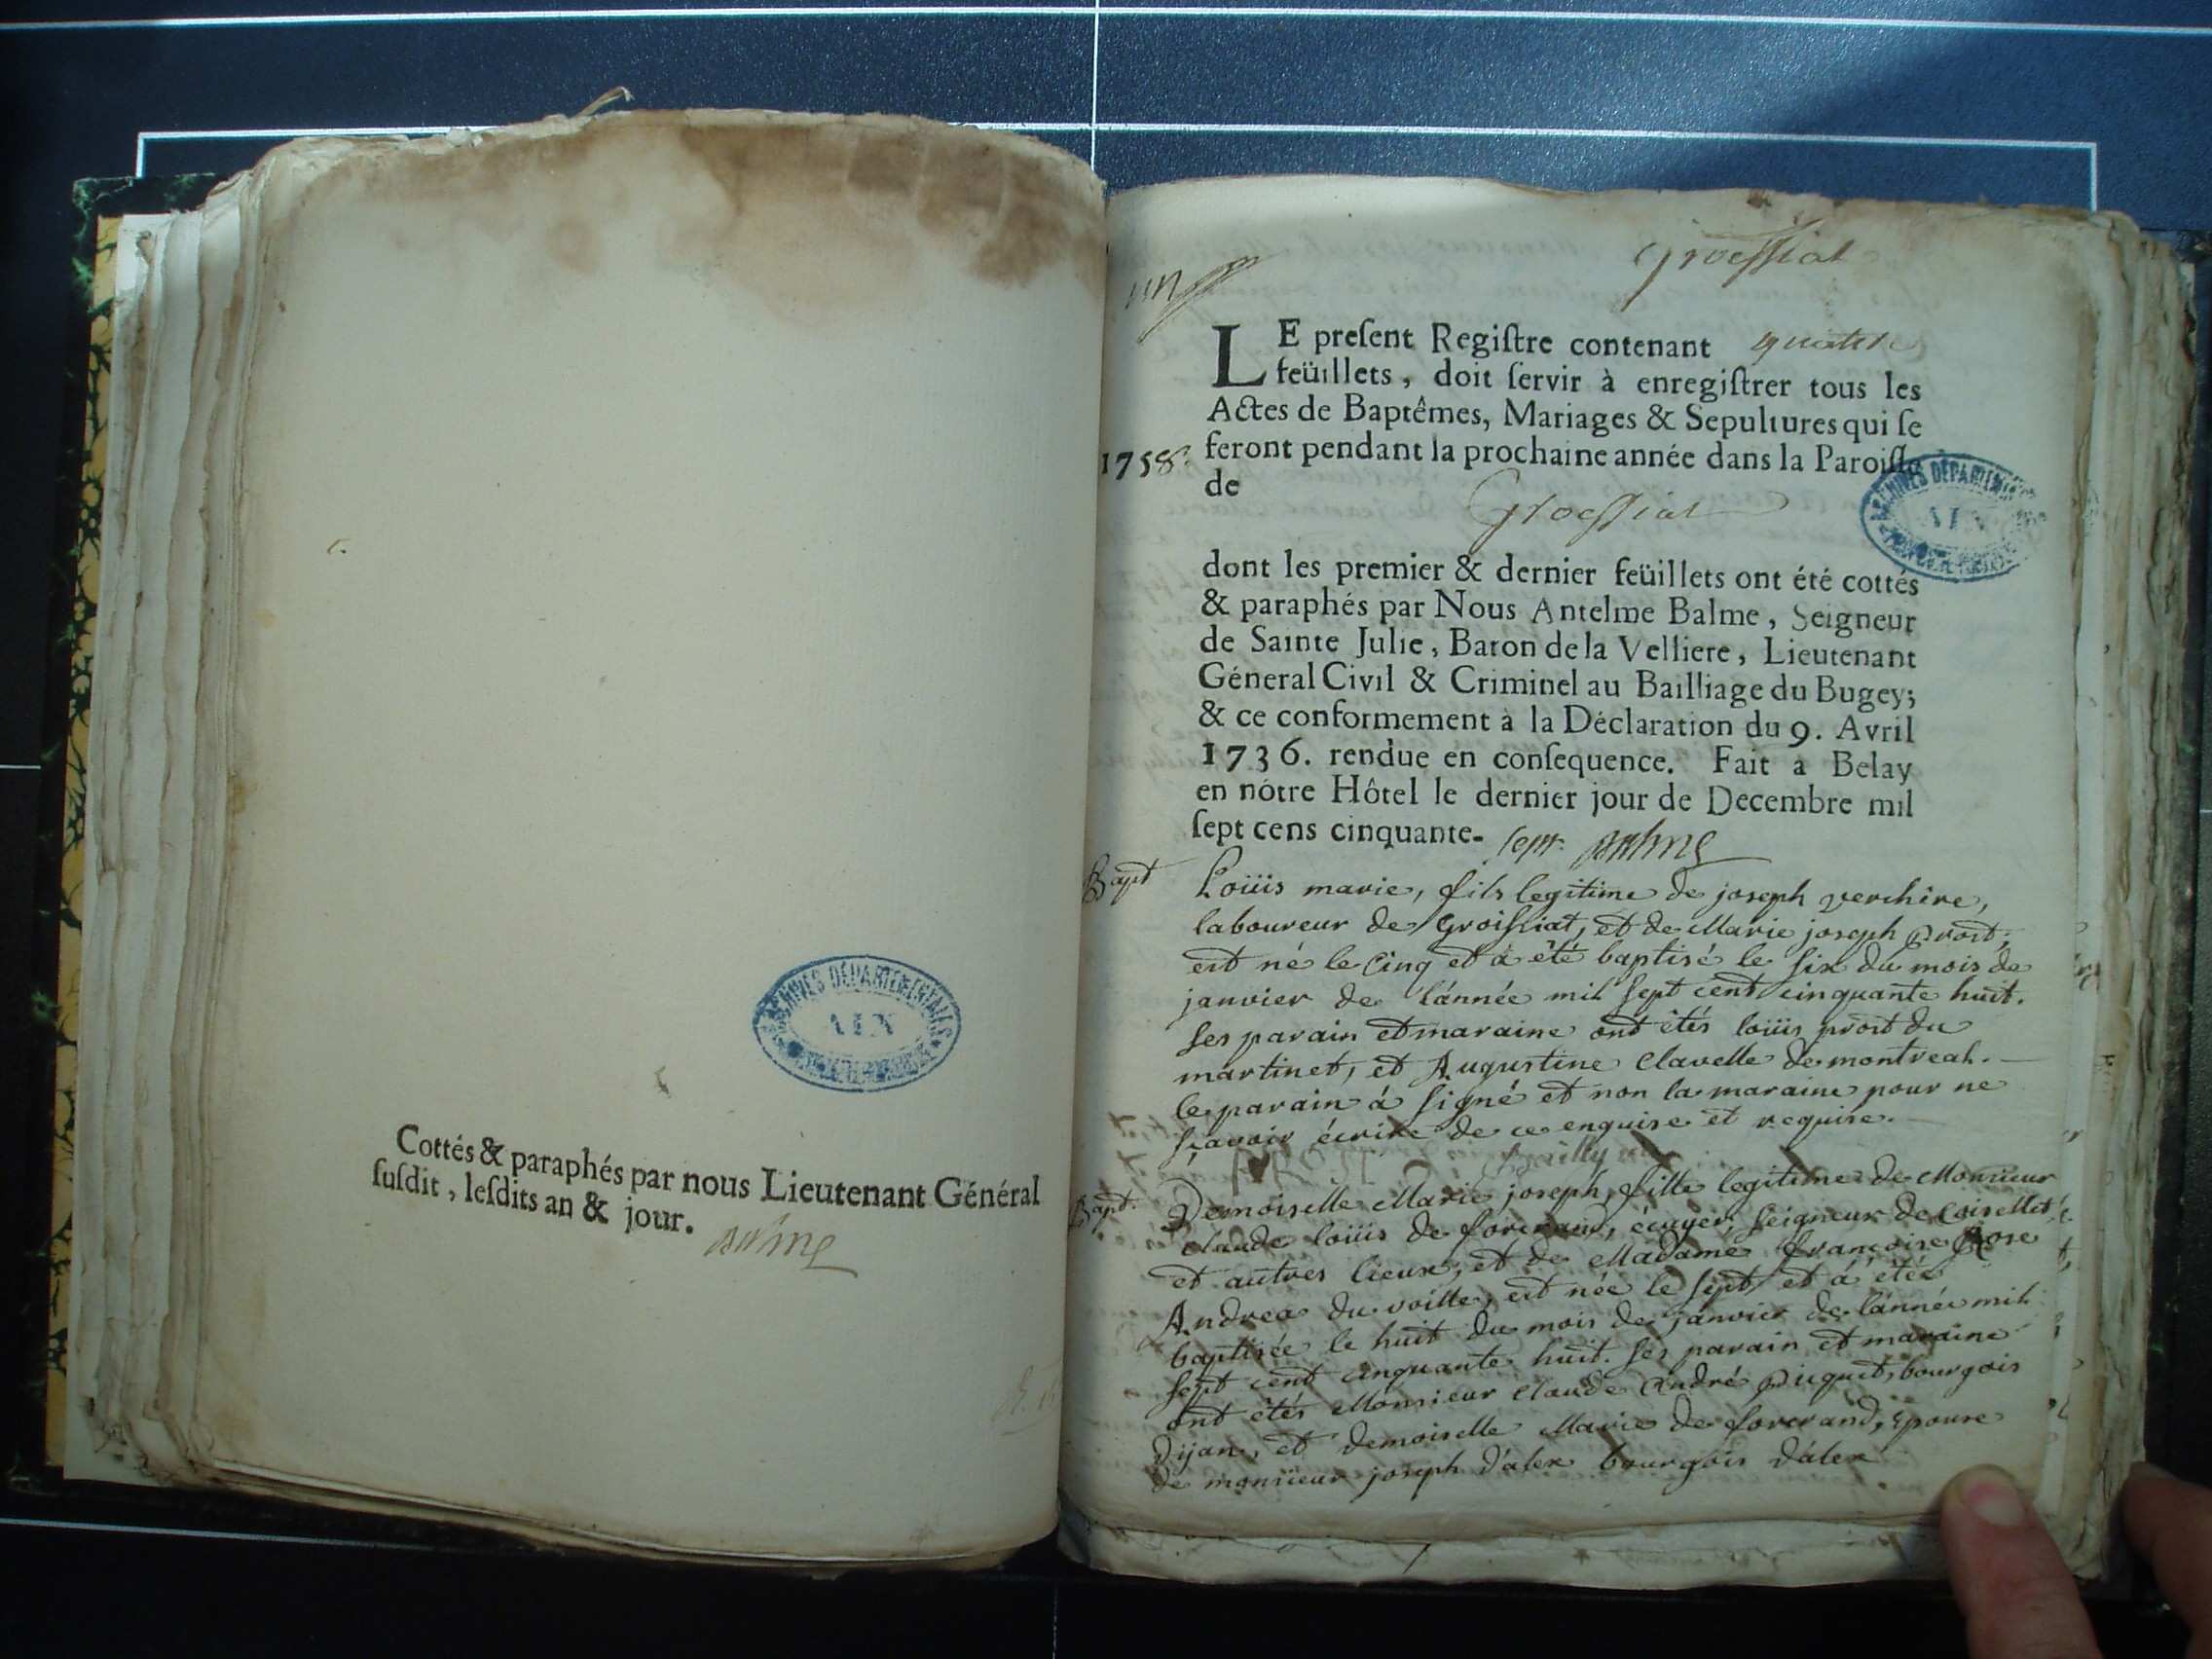 Cottés & paraphés par nous Lieutenant Général
ſuſdit, leſdits an & jour.
Balme
ARCHIVES DÉPARTEMENTALES
AIN
un
Groessiat
LE preſent Regiſtre contenant quatre
feüillets, doit ſervir à enregiſtrer tous les
Actes de Baptêmes, Mariages & Sepultures qui ſe
1758. feront pendant la prochaine année dans la Paroiſſe
de
Groessiat
ARCHIVES DÉPARTEMENTALES
AIN
dont les premier & dernier feüillets ont été cottés
& paraphés par Nous Antelme Balme, Seigneur
de Sainte Julie, Baron de la Velliere, Lieutenant
Géneral Civil & Criminel au Bailliage du Bugey;
& ce conformement à la Déclaration du 9. Avril
1736. rendue en conſequence. Fait à Belay
en nôtre Hôtel le dernier jour de Decembre mil
ſept cens cinquante- sept. Balme
Bapt Loüis marie, fils legitime de joseph verchire,
laboureur de Groissiat, et de Marie joseph prost,
est né le cinq et à été baptisé le six du mois de
janvier de l'année mil sept cent cinquante huit.
ses parain et maraine ont étés loüis prost du
martinet, et Augustine Clavelle de montreal.
le parain á signé et non la maraine pour ne
sçavoir écrire de ce enquise et requise.
PROST
Bapt. Demoiselle Marie joseph, fille legitime de Monsieur
claude loüis de forcrand, écuyer, seigneur de Coisellet,
et autres lieux, et de Madame françoise Rose
Andrea du voille, est née le sept et á étéz
baptisée le huit du mois de janvier de l'année mil
sept cent cinquante huit. ses parain et maraine
ont étés Monsieur claude André piquet, bourgois
Dijon, et Demoiselle Marie de forcrand, Epouse
de monsieur joseph d'alex bourgois d'alex